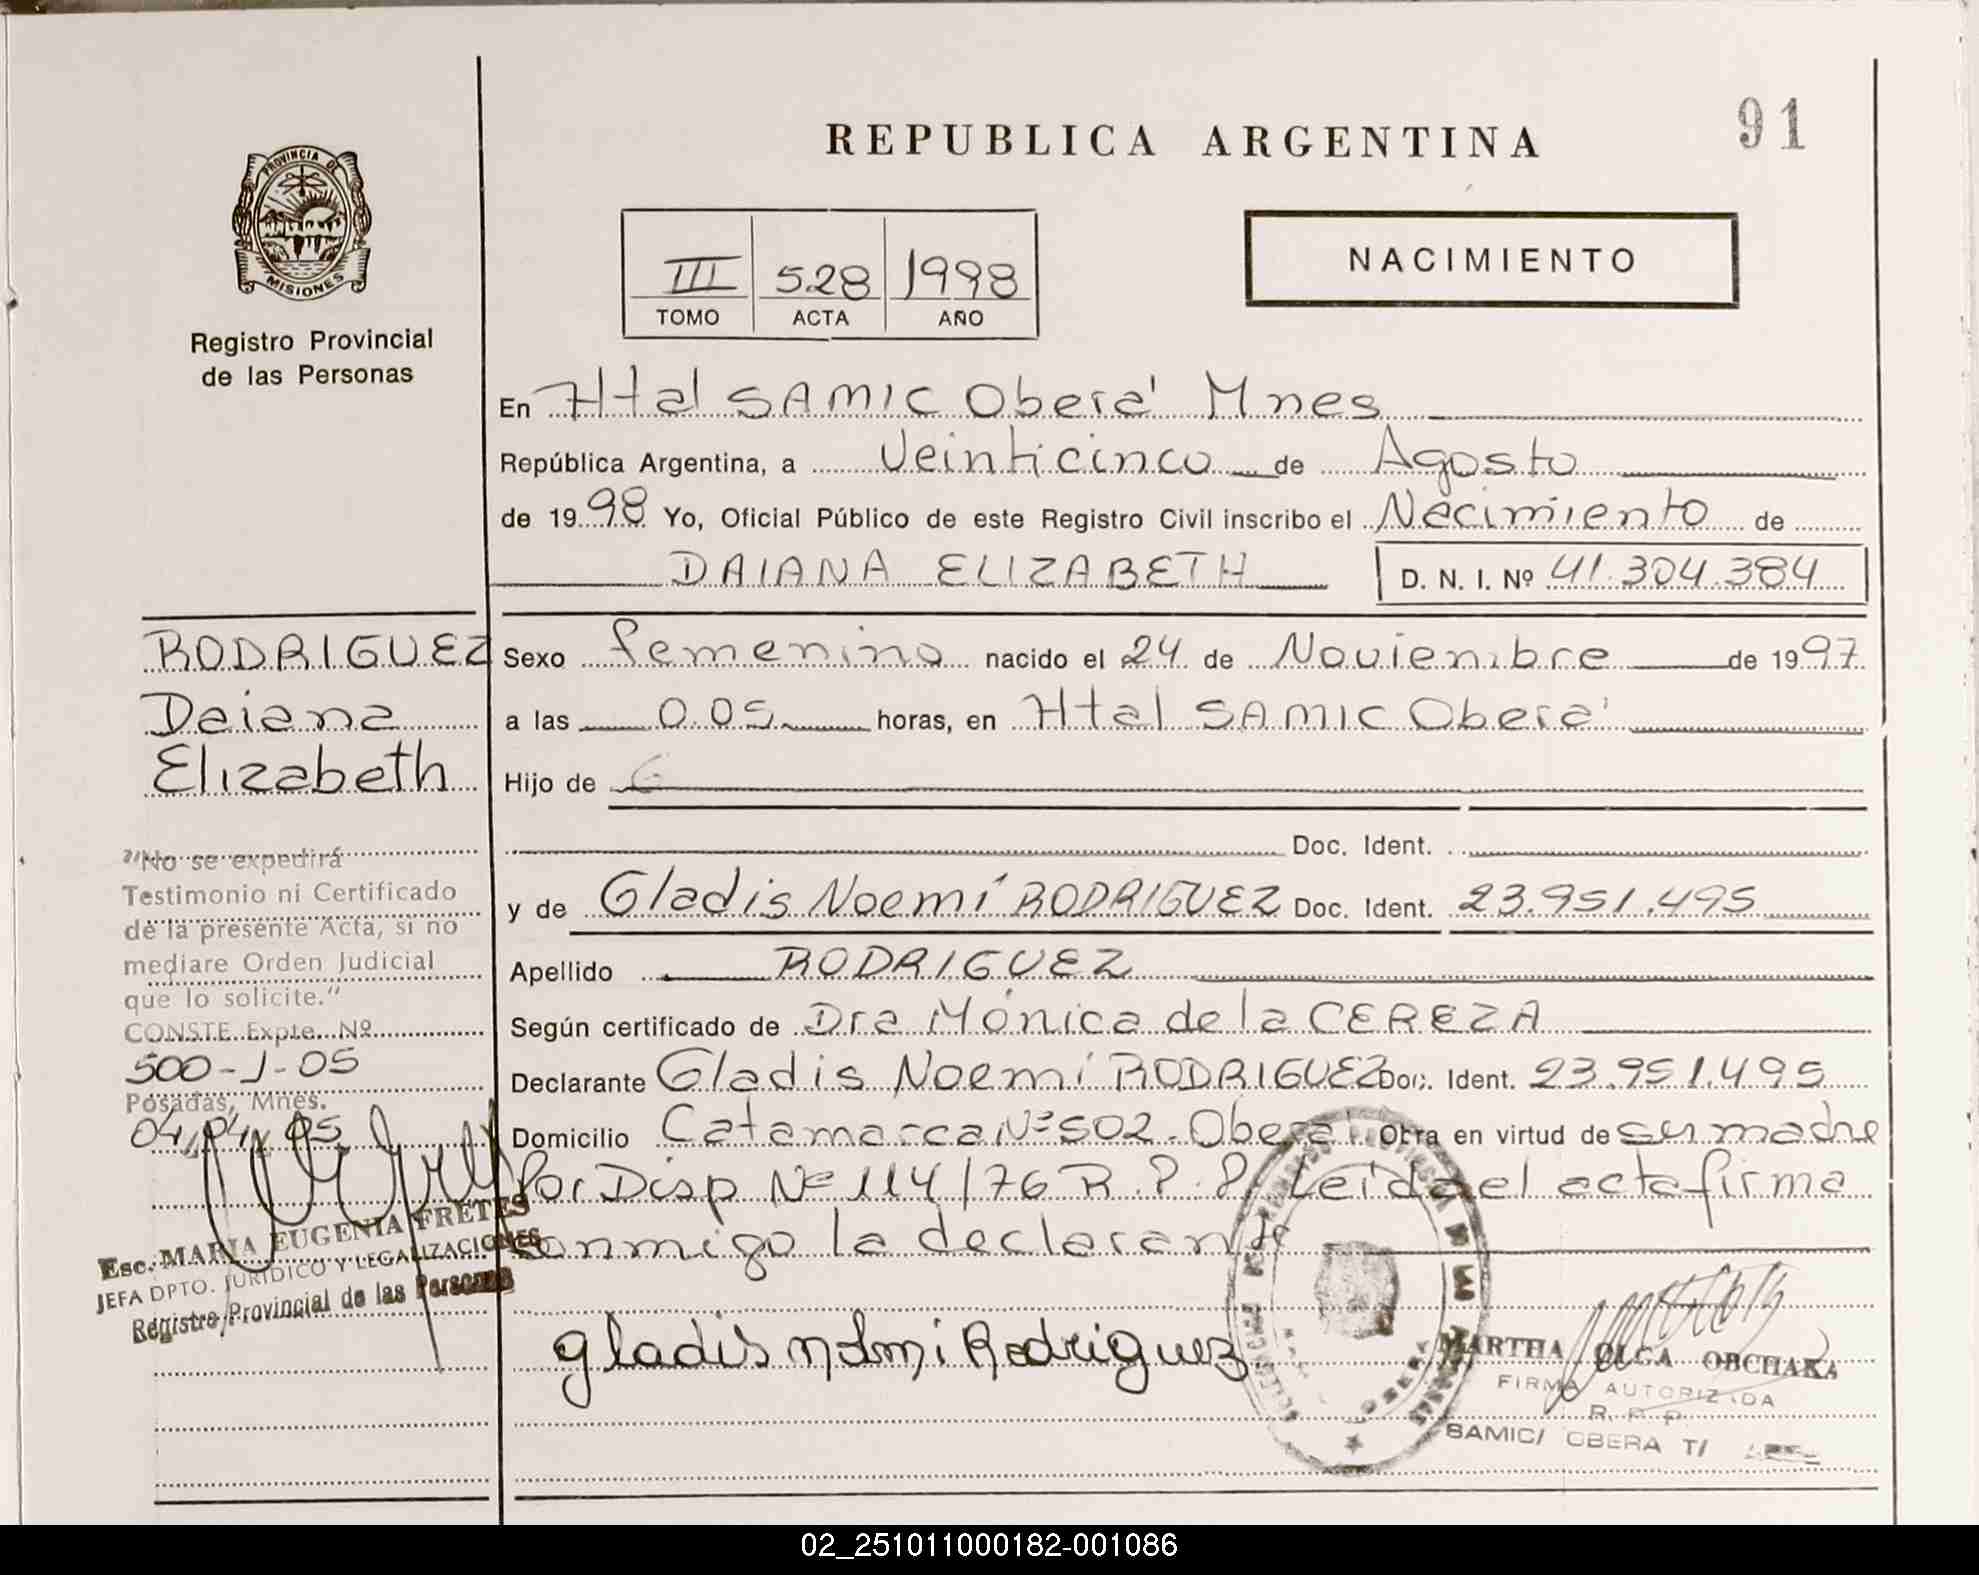 91
REPUBLICA ARGENTINA
PROVINCIA DE
MISIONES
Registro Provincial
de las Personas
III 528 1998
TOMO ACTA AÑO
NACIMIENTO
En Htal SAMIC Oberá Mnes
República Argentina, a Veinticinco de Agosto
de 1998 Yo, Oficial Público de este Registro Civil inscribo el Nacimiento de
DAIANA ELIZABETH D. N. I. Nº 41.304.384
RODRIGUEZ
Daiana
Elizabeth
Sexo femenino nacido el 24 de Noviembre de 1997
a las 0.05 horas, en Htal SAMIC Oberá
Hijo de
Doc. Ident.
y de Gladis Noemí RODRIGUEZ Doc. Ident. 23.951.495
Apellido RODRIGUEZ
Según certificado de Dra Mónica de la CEREZA
Declarante Gladis Noemí RODRIGUEZ Doc. Ident. 23.951.495
Domicilio Catamarca Nº 502. Oberá Obra en virtud de ser madre
por Disp Nº 114/76 R.P.P. Leída el acta firma
conmigo la declarante
"No se expedirá
Testimonio ni Certificado
de la presente Acta, si no
mediare Orden Judicial
que lo solicite."
CONSTE Expte. Nº
500-J-05
Posadas, Mnes.
04,04,05
Esc. MARIA EUGENIA FRETES
JEFA DPTO. JURIDICO Y LEGALIZACIONES
Registro Provincial de las Personas
gladis noemi Rodriguez
MARTHA OLGA OBCHAKA
FIRMA AUTORIZADA
R. P. P.
SAMIC/ OBERA T/
02_251011000182-001086